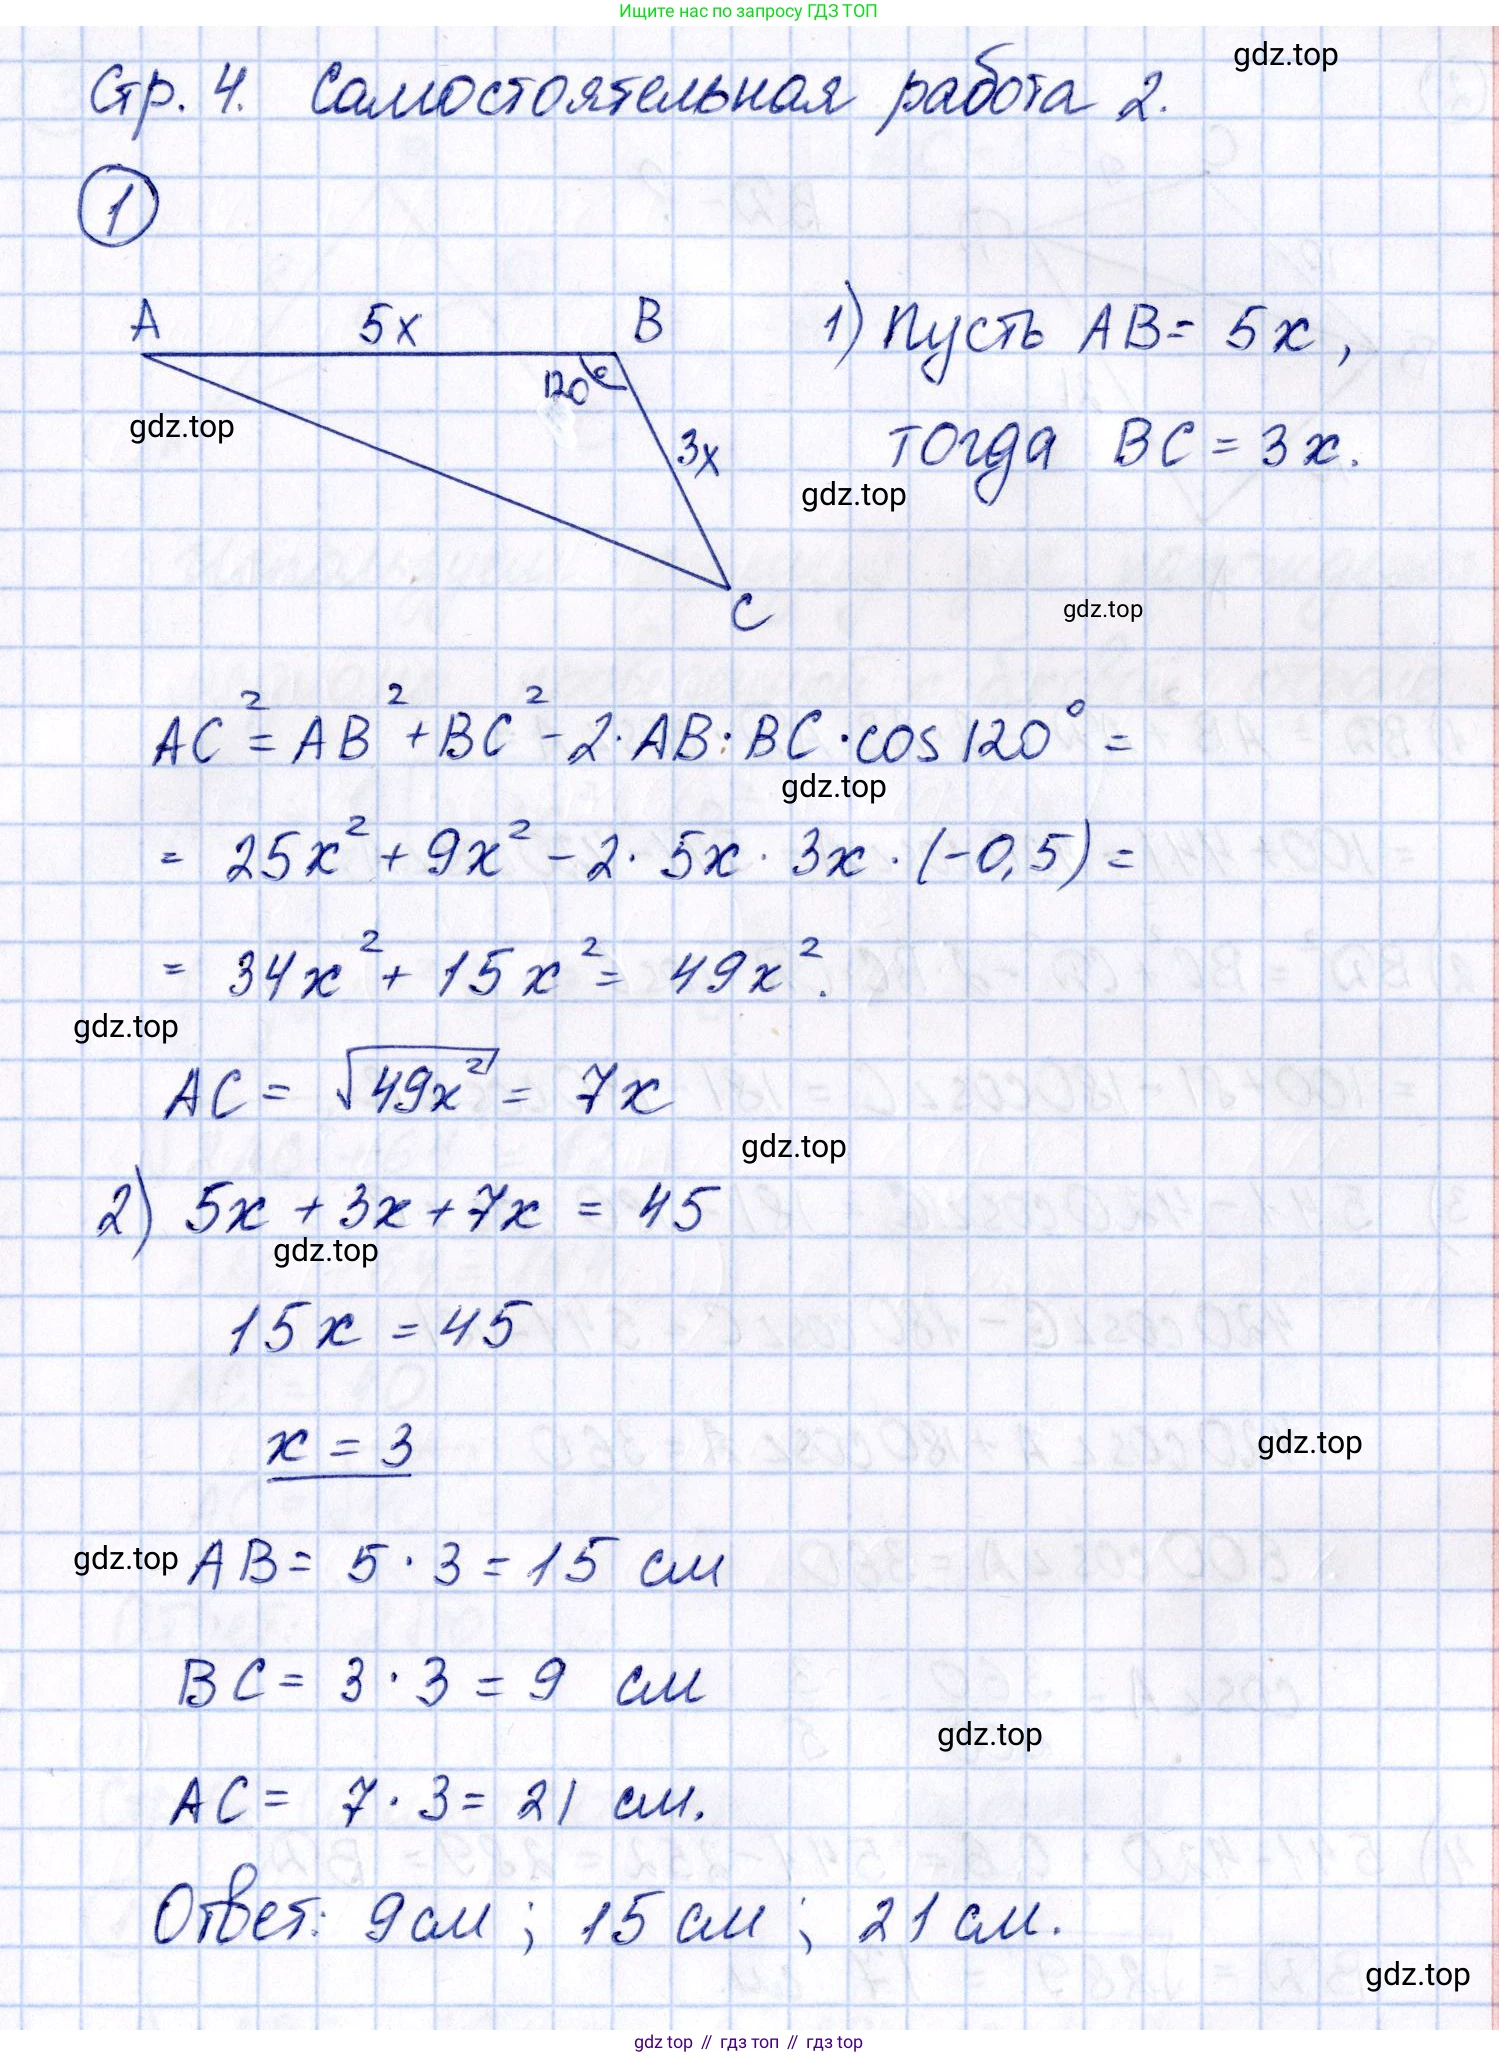 Ищите нас по запросу ГДЗ ТОП
gdz.top
Стр. 4. Самостоятельная работа 2.
1
A 5x B
120°
3x
C
gdz.top
1) Пусть AB = 5x,
тогда BC = 3x.
gdz.top
gdz.top
AC² = AB² + BC² - 2 · AB · BC · cos 120° =
gdz.top
= 25x² + 9x² - 2 · 5x · 3x · (-0,5) =
= 34x² + 15x² = 49x².
gdz.top
AC = √49x² = 7x
gdz.top
2) 5x + 3x + 7x = 45
gdz.top
15x = 45
x = 3
gdz.top
gdz.top
AB = 5 · 3 = 15 см
BC = 3 · 3 = 9 см
gdz.top
AC = 7 · 3 = 21 см.
Ответ: 9 см ; 15 см ; 21 см.
gdz.top
gdz top // гдз топ // гдз top